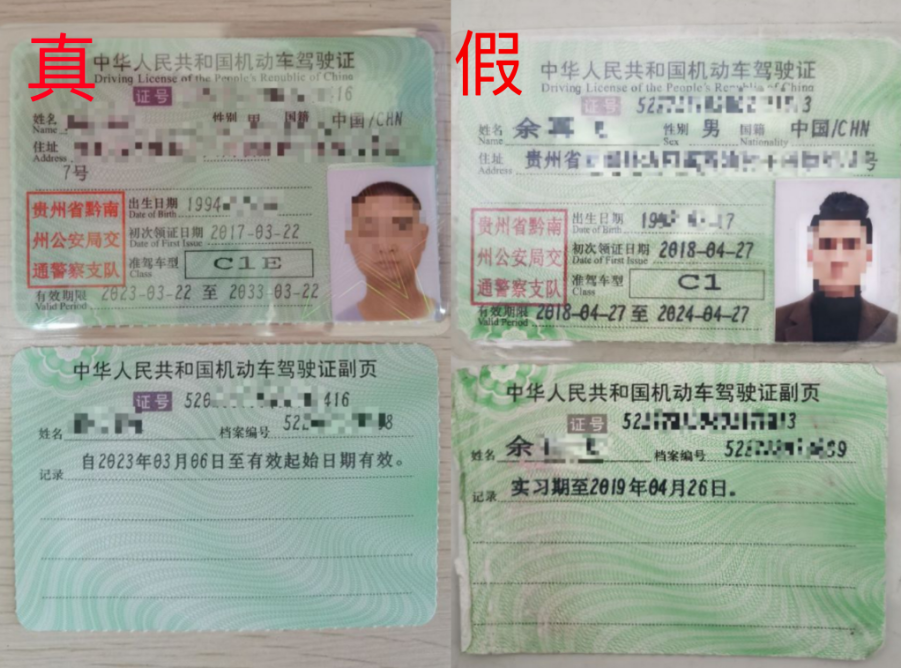 真
中华人民共和国机动车驾驶证
Driving License of the People's Republic of China
证号 16
姓名
Name
性别 男 国籍 中国/CHN
住址
Address
7号
贵州省黔南
州公安局交
通警察支队
出生日期 1994-
Date of Birth
初次领证日期 2017-03-22
Date of First Issue
准驾车型 C1E
Class
有效期限 2023-03-22 至 2033-03-22
Valid Period
中华人民共和国机动车驾驶证副页
证号 520 416
姓名 档案编号 522 8
记录 自2023年03月06日至有效起始日期有效。
假
中华人民共和国机动车驾驶证
Driving License of the People's Republic of China
证号 52 3
姓名 余 性别 男 国籍 中国/CHN
Name Sex Nationality
住址 贵州省 号
Address
贵州省黔南
州公安局交
通警察支队
出生日期 199 17
Date of Birth
初次领证日期 2018-04-27
Date of First Issue
准驾车型 C1
Class
有效期限 2018-04-27 至 2024-04-27
Valid Period
中华人民共和国机动车驾驶证副页
证号 52 3
姓名 余 档案编号 522 89
记录 实习期至2019年04月26日。